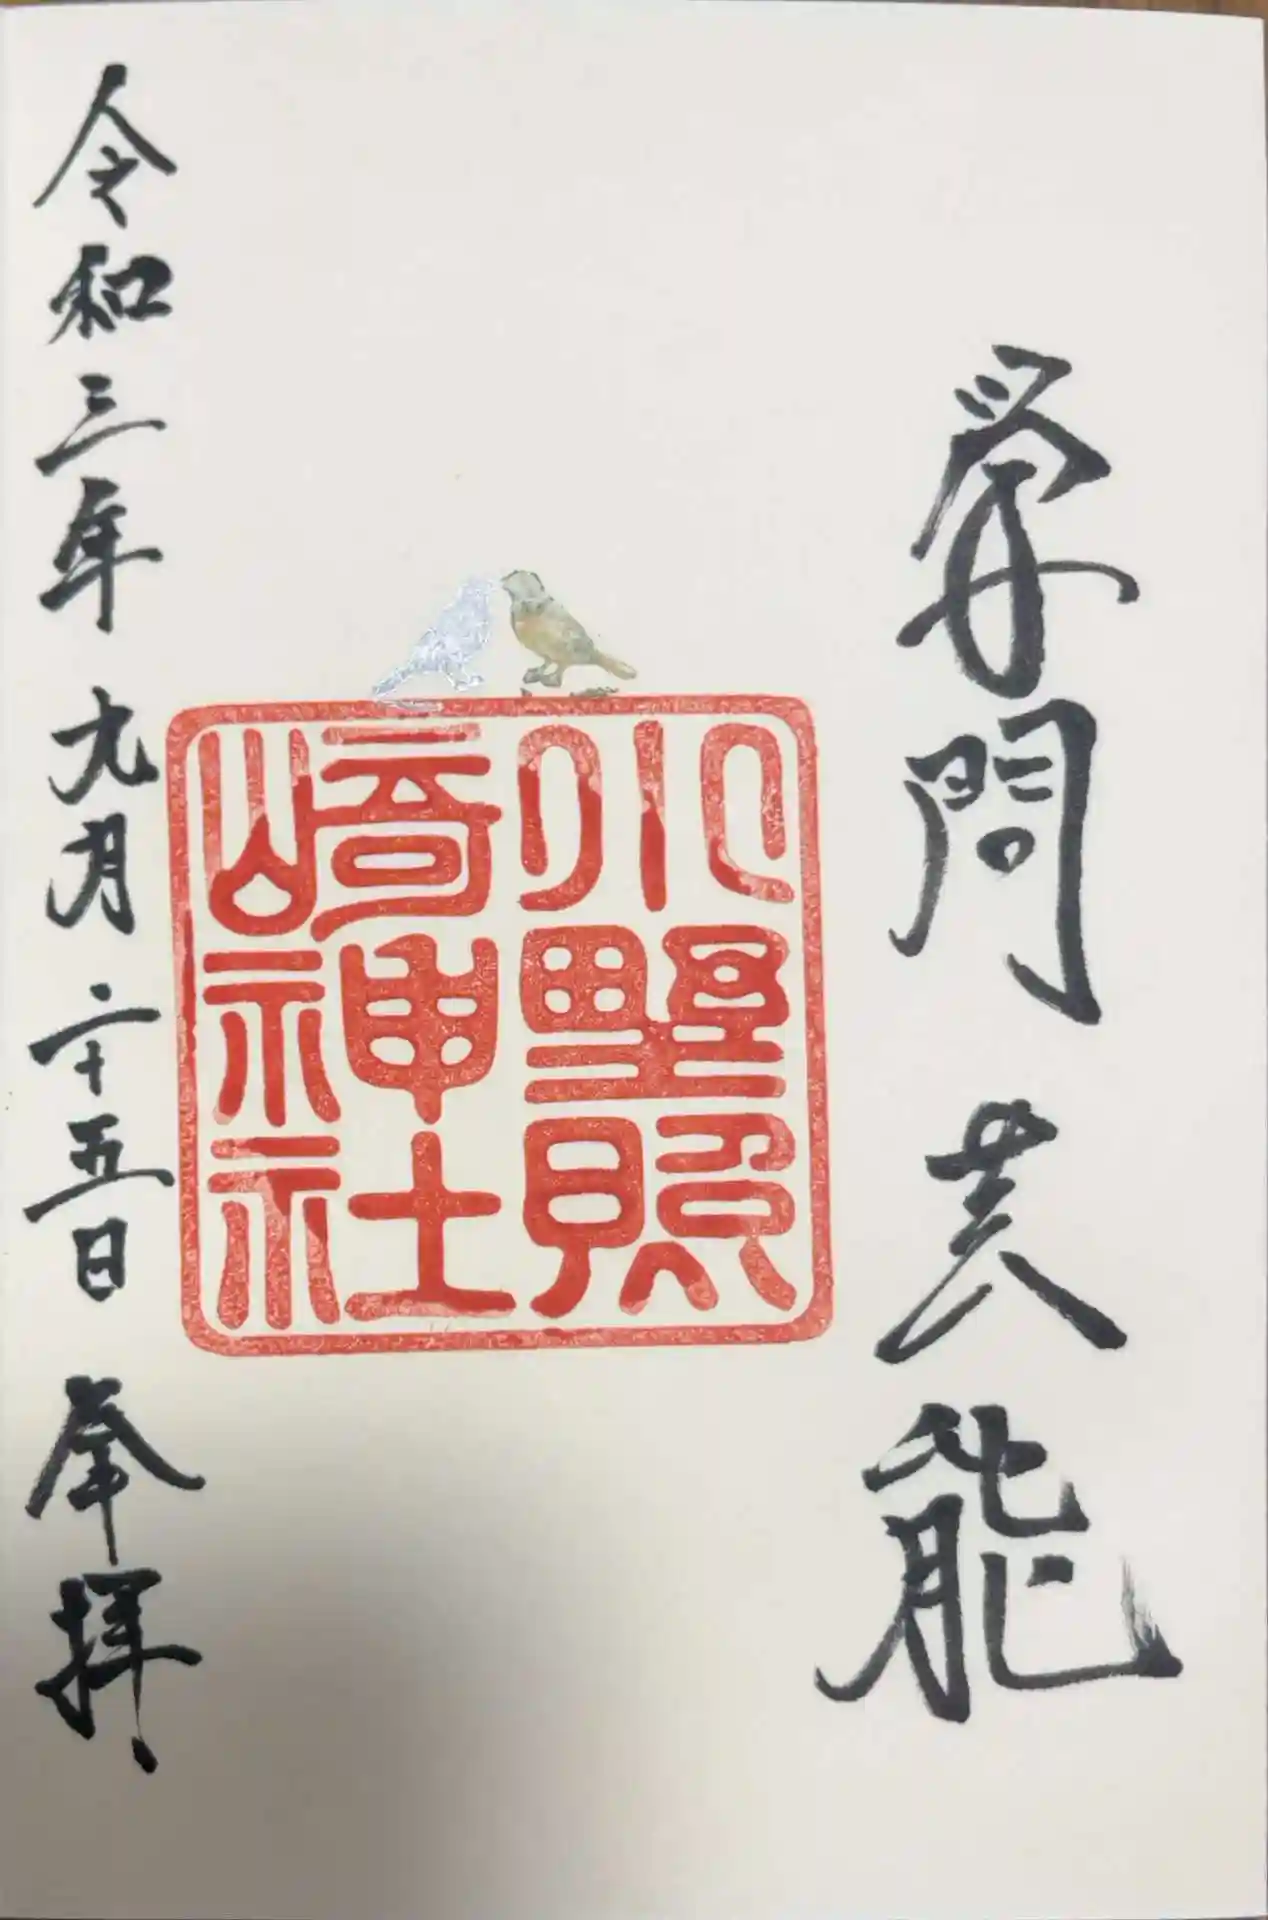 学問芸能
小野照
崎神社
令和三年九月二十五日奉拝